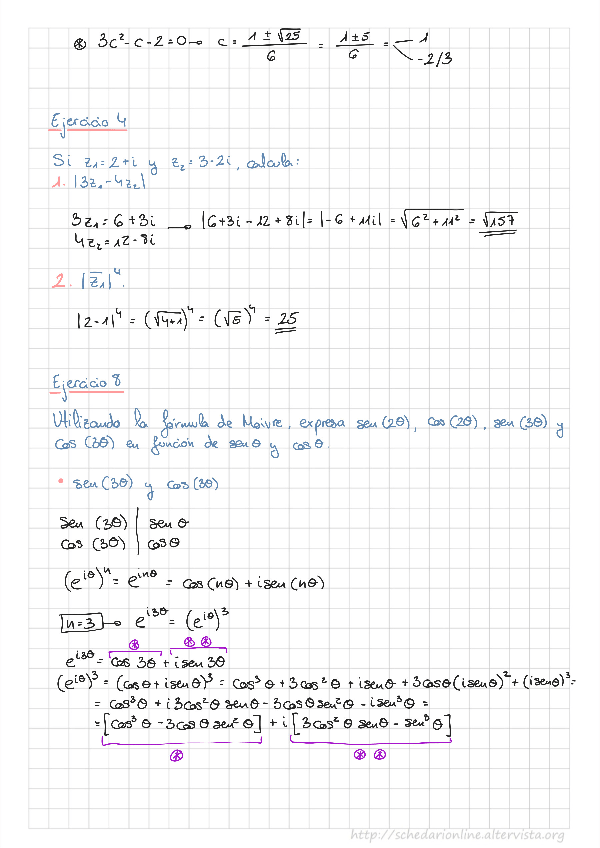 ⊛ 3c² - c - 2 = 0 → c = (1 ± √25)/6 = (1 ± 5)/6 = 1
-2/3
Ejercicio 4
Si z₁ = 2 + i y z₂ = 3 - 2i, calcula:
1. |3z₁ - 4z₂|
3z₁ = 6 + 3i → |6 + 3i - 12 + 8i| = |-6 + 11i| = √(6² + 11²) = √157
4z₂ = 12 - 8i
2. |z̄₁|⁴.
|2 - 1|⁴ = (√(4+1))⁴ = (√5)⁴ = 25
Ejercicio 8
Utilizando la fórmula de Moivre, expresa sen (2θ), cos (2θ), sen (3θ) y
cos (3θ) en función de sen θ y cos θ.
• sen (3θ) y cos (3θ)
sen (3θ) | sen θ
cos (3θ) | cos θ
(e^{iθ})^n = e^{inθ} = cos (nθ) + i sen (nθ)
n=3 → e^{i3θ} = (e^{iθ})³
⊛ ⊛⊛
e^{i3θ} = cos 3θ + i sen 3θ
(e^{iθ})³ = (cos θ + i sen θ)³ = cos³ θ + 3cos² θ + i sen θ + 3cos θ (i sen θ)² + (i sen θ)³ =
= cos³ θ + i 3cos² θ sen θ - 3cos θ sen² θ - i sen³ θ =
= [cos³ θ - 3cos θ sen² θ] + i [3cos² θ sen θ - sen³ θ]
⊛ ⊛⊛
http://schedarionline.altervista.org